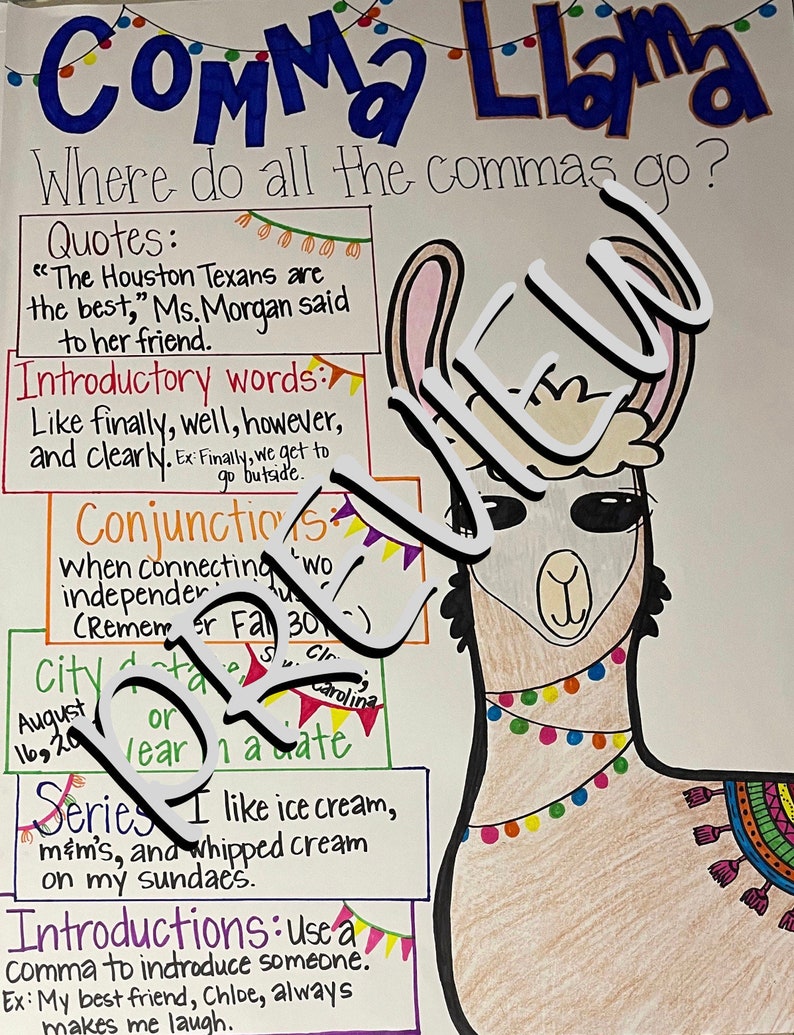 Comma Llama
Where do all the commas go?
Quotes:
“The Houston Texans are
the best,” Ms. Morgan said
to her friend.
Introductory words:
Like finally, well, however,
and clearly. Ex: Finally, we get to
go outside.
Conjunctions:
when connecting two
independent
(Remember
City
Carolina
August
16,
or
year in a date
Series: I like ice cream,
m&m's, and whipped cream
on my sundaes.
Introductions: Use a
comma to indroduce someone.
Ex: My best friend, Chloe, always
makes me laugh.
PREVIEW